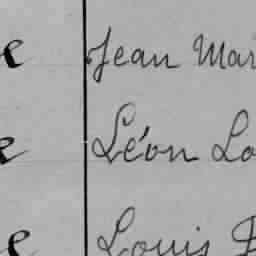 e Jean Mar
e Léon Lo
e Louis